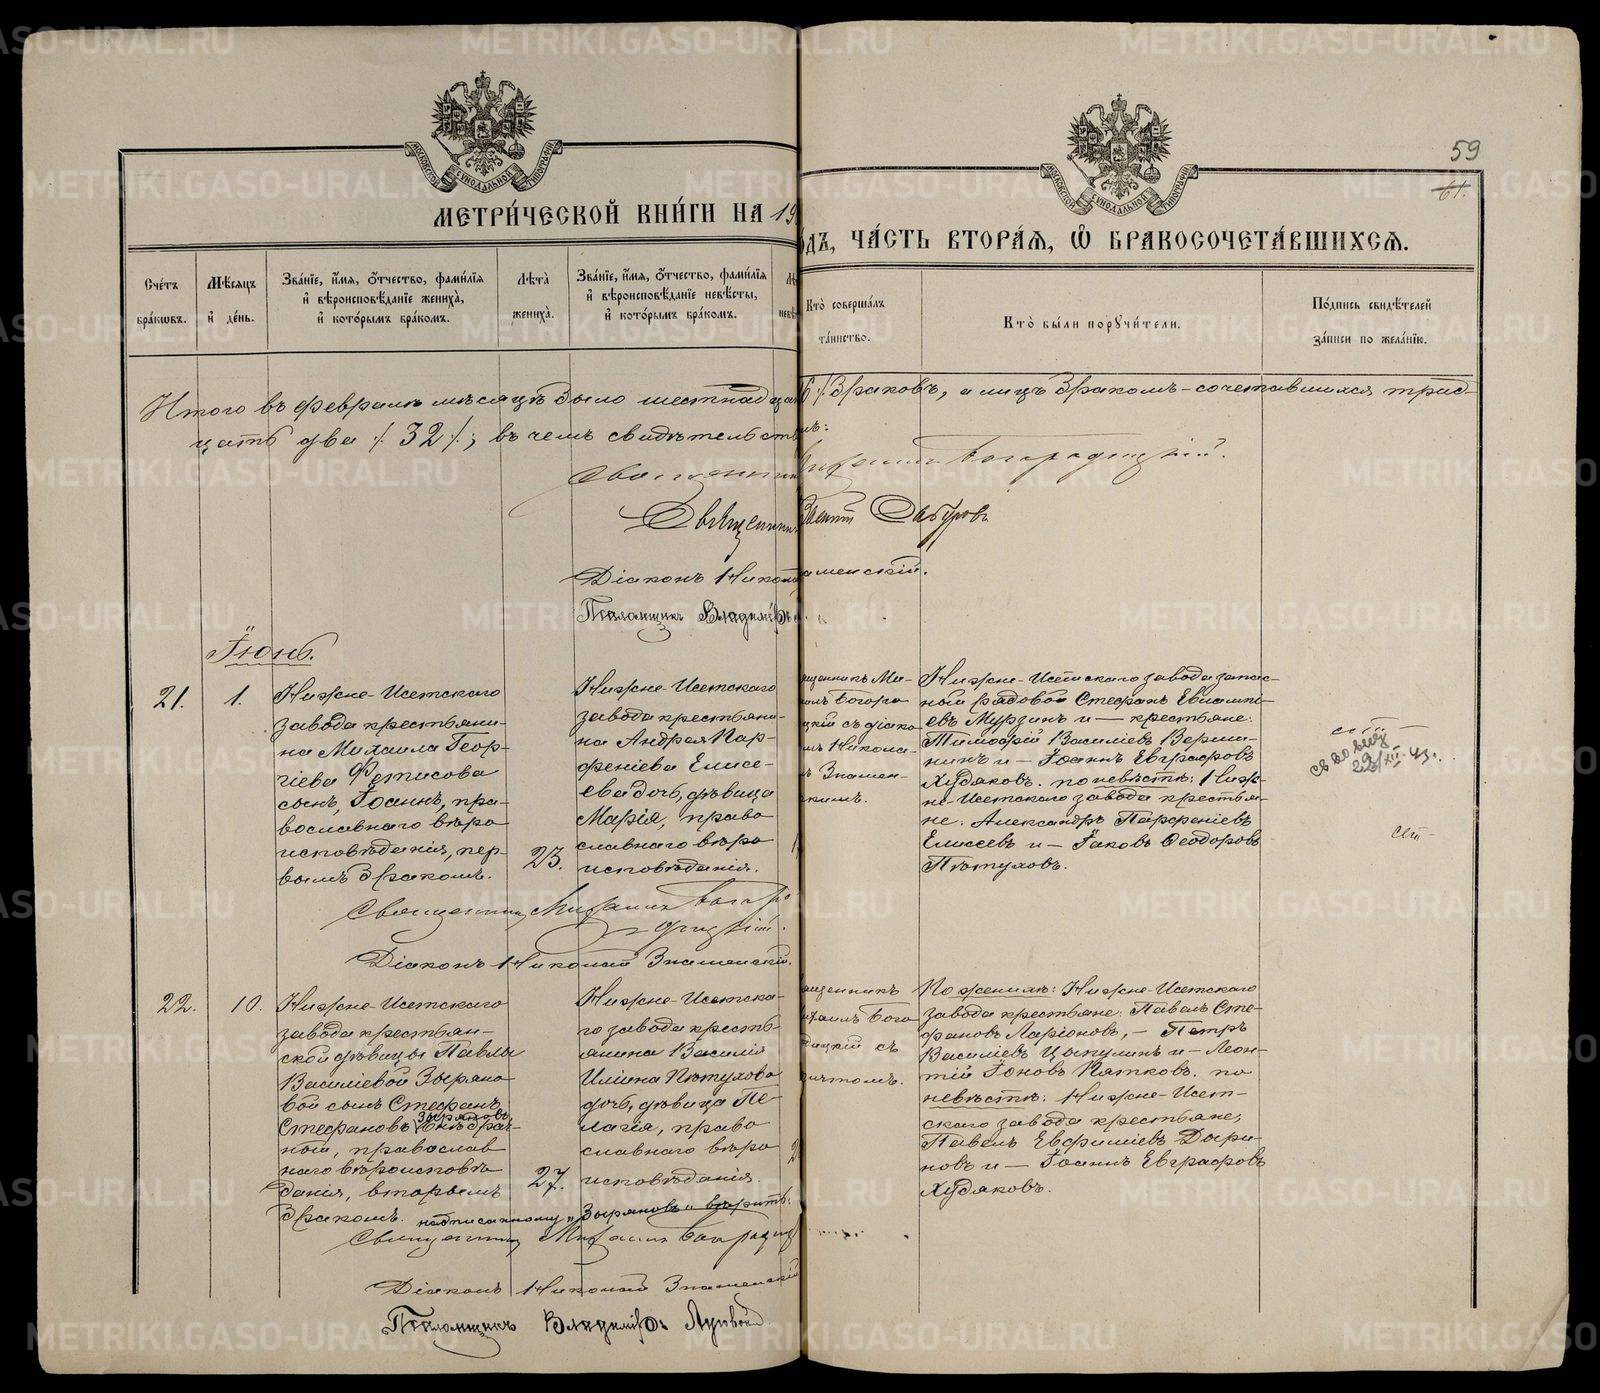 МЕТРИ́ЧЕСКОЙ КНИ́ГИ НА 19
ОДЪ, ЧА́СТЬ ВТОРА́Я, Ѡ БРАКОСОЧЕТА́ВШИХСЯ.
59
61.
Сче́тъ бра́кωвъ.
Мѣ́сяцъ и҆ де́нь.
Зва́нїе, и҆́мя, ѻ҆́тчество, фами́лїя и҆ вѣроисповѣ́данїе жениха̀, и҆ кото́рымъ бра́комъ.
Лѣ́та жениха̀.
Зва́нїе, и҆́мя, ѻ҆́тчество, фами́лїя и҆ вѣроисповѣ́данїе невѣ́сты, и҆ кото́рымъ бра́комъ.
Кто̀ соверша́лъ та́инство.
Кто̀ бы́ли порꙋчи́тели.
По́дпись свидѣ́телей за́писи по жела́нїю.
Итого въ февралѣ мѣсяцѣ было шестнадцать 16 ./. браковъ, а лицъ бракомъ-сочетавшихся трид-
цать два ./. 32 ./.; въ чемъ свидѣтельств мъ:
Священник Михаилъ Богородицкій.
Священник Сабуровъ
Діаконъ Никол наменскій.
Псаломщикъ Владиміръ
Іюнь.
21.
1.
Нижне-Исетскаго
завода крестьяни-
на Михаила Геор-
гіева Фетисова
сынъ, Іоаннъ, пра-
вославнаго вѣро
исповѣданія, пер-
вымъ бракомъ.
23.
Нижне-Исетскаго
завода крестьяни-
на Андрея Пар-
феніева Елисе-
ева дочь, дѣвица
Марія, право
славнаго вѣро
исповѣданія.
щенникъ Ми-
илъ Богоро
цкій съ діако
мъ Никола-
ъ Знамен-
кимъ.
Нижне-Исетскаго завода запас-
ный рядовой Стефанъ Евлампі-
евъ Мурзинъ и — крестьяне:
Тимофей Василіевъ Верши-
нинъ и — Іоаннъ Евграфовъ
Худяковъ. по невѣстѣ: Ниж-
не-Исетскаго завода крестья-
не: Александръ Парфеніевъ
Елисеевъ и — Іаковъ Ѳеодоровъ
Пѣтуховъ.
22/XII-43.
Священник Михаилъ Богоро
дицкій.
Діаконъ Николай Знаменскій.
22.
10.
Нижне-Исетскаго
завода крестьян-
ской дѣвицы Павлы
Василіевой Зыряно
вой сынъ Стефанъ
Стефановъ Зыряновъ, внѣбрач-
ный, православ
наго вѣроисповѣ
данія, вторымъ
бракомъ. надписанному „Зыряновъ„ вѣрить.
27.
Нижне-Исетска-
го завода кресть-
янина Василія
Иліина Пѣтухова
дочь, дѣвица Пе-
лагія, право
славнаго вѣро
исповѣданія.
ященникъ
ихаилъ Бого
дицкій съ
ричтомъ.
По женихѣ: Нижне-Исетскаго
завода крестьяне: Павелъ Сте-
фановъ Ларіоновъ, — Петръ
Василіевъ Цыпулинъ и — Леон-
тій Іоновъ Пятковъ. по
невѣстѣ: Нижне-Исет-
скаго завода крестьяне;
Павелъ Евфиміевъ Дыри-
новъ и — Іоаннъ Евграфовъ
Худяковъ.
Священник Михаилъ Богородиц
Діаконъ Николай Знаменскій
Псаломщикъ Владиміръ Луговой